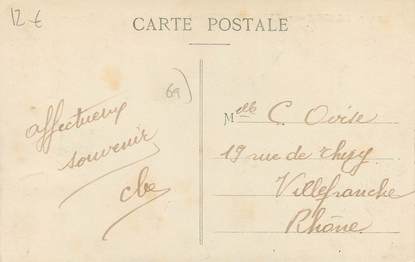 12 €
CARTE POSTALE
69
affectueux
souvenir
Mlle C.
19 rue de Thizy
Villefranche
Rhône